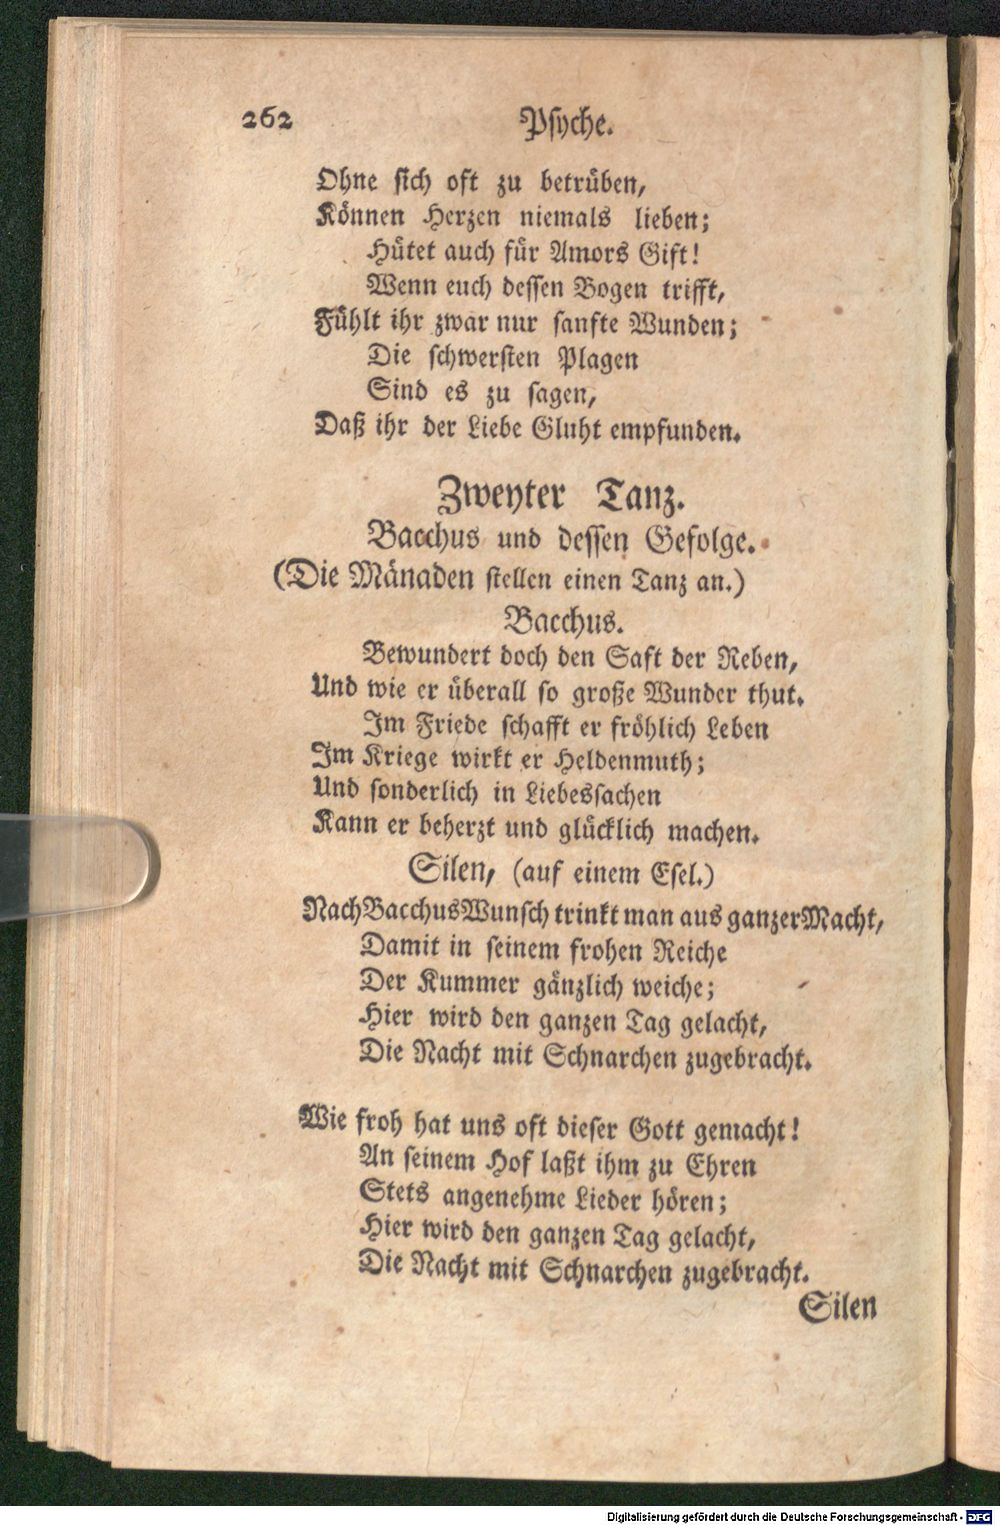 262 Psyche.
Ohne sich oft zu betrüben,
Können Herzen niemals lieben;
Hütet auch für Amors Gift!
Wenn euch dessen Bogen trifft,
Fühlt ihr zwar nur sanfte Wunden;
Die schwersten Plagen
Sind es zu sagen,
Daß ihr der Liebe Gluht empfunden.
Zweyter Tanz.
Bacchus und dessen Gefolge.
(Die Mänaden stellen einen Tanz an.)
Bacchus.
Bewundert doch den Saft der Reben,
Und wie er überall so große Wunder thut.
Im Friede schafft er fröhlich Leben
Im Kriege wirkt er Heldenmuth;
Und sonderlich in Liebessachen
Kann er beherzt und glücklich machen.
Silen, (auf einem Esel.)
Nach Bacchus Wunsch trinkt man aus ganzer Macht,
Damit in seinem frohen Reiche
Der Kummer gänzlich weiche;
Hier wird den ganzen Tag gelacht,
Die Nacht mit Schnarchen zugebracht.
Wie froh hat uns oft dieser Gott gemacht!
An seinem Hof laßt ihm zu Ehren
Stets angenehme Lieder hören;
Hier wird den ganzen Tag gelacht,
Die Nacht mit Schnarchen zugebracht.
Silen
Digitalisierung gefördert durch die Deutsche Forschungsgemeinschaft - DFG